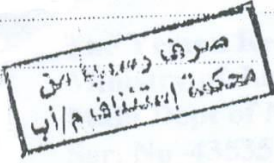 صرف رسميا من
محكمة إستئناف م/أب